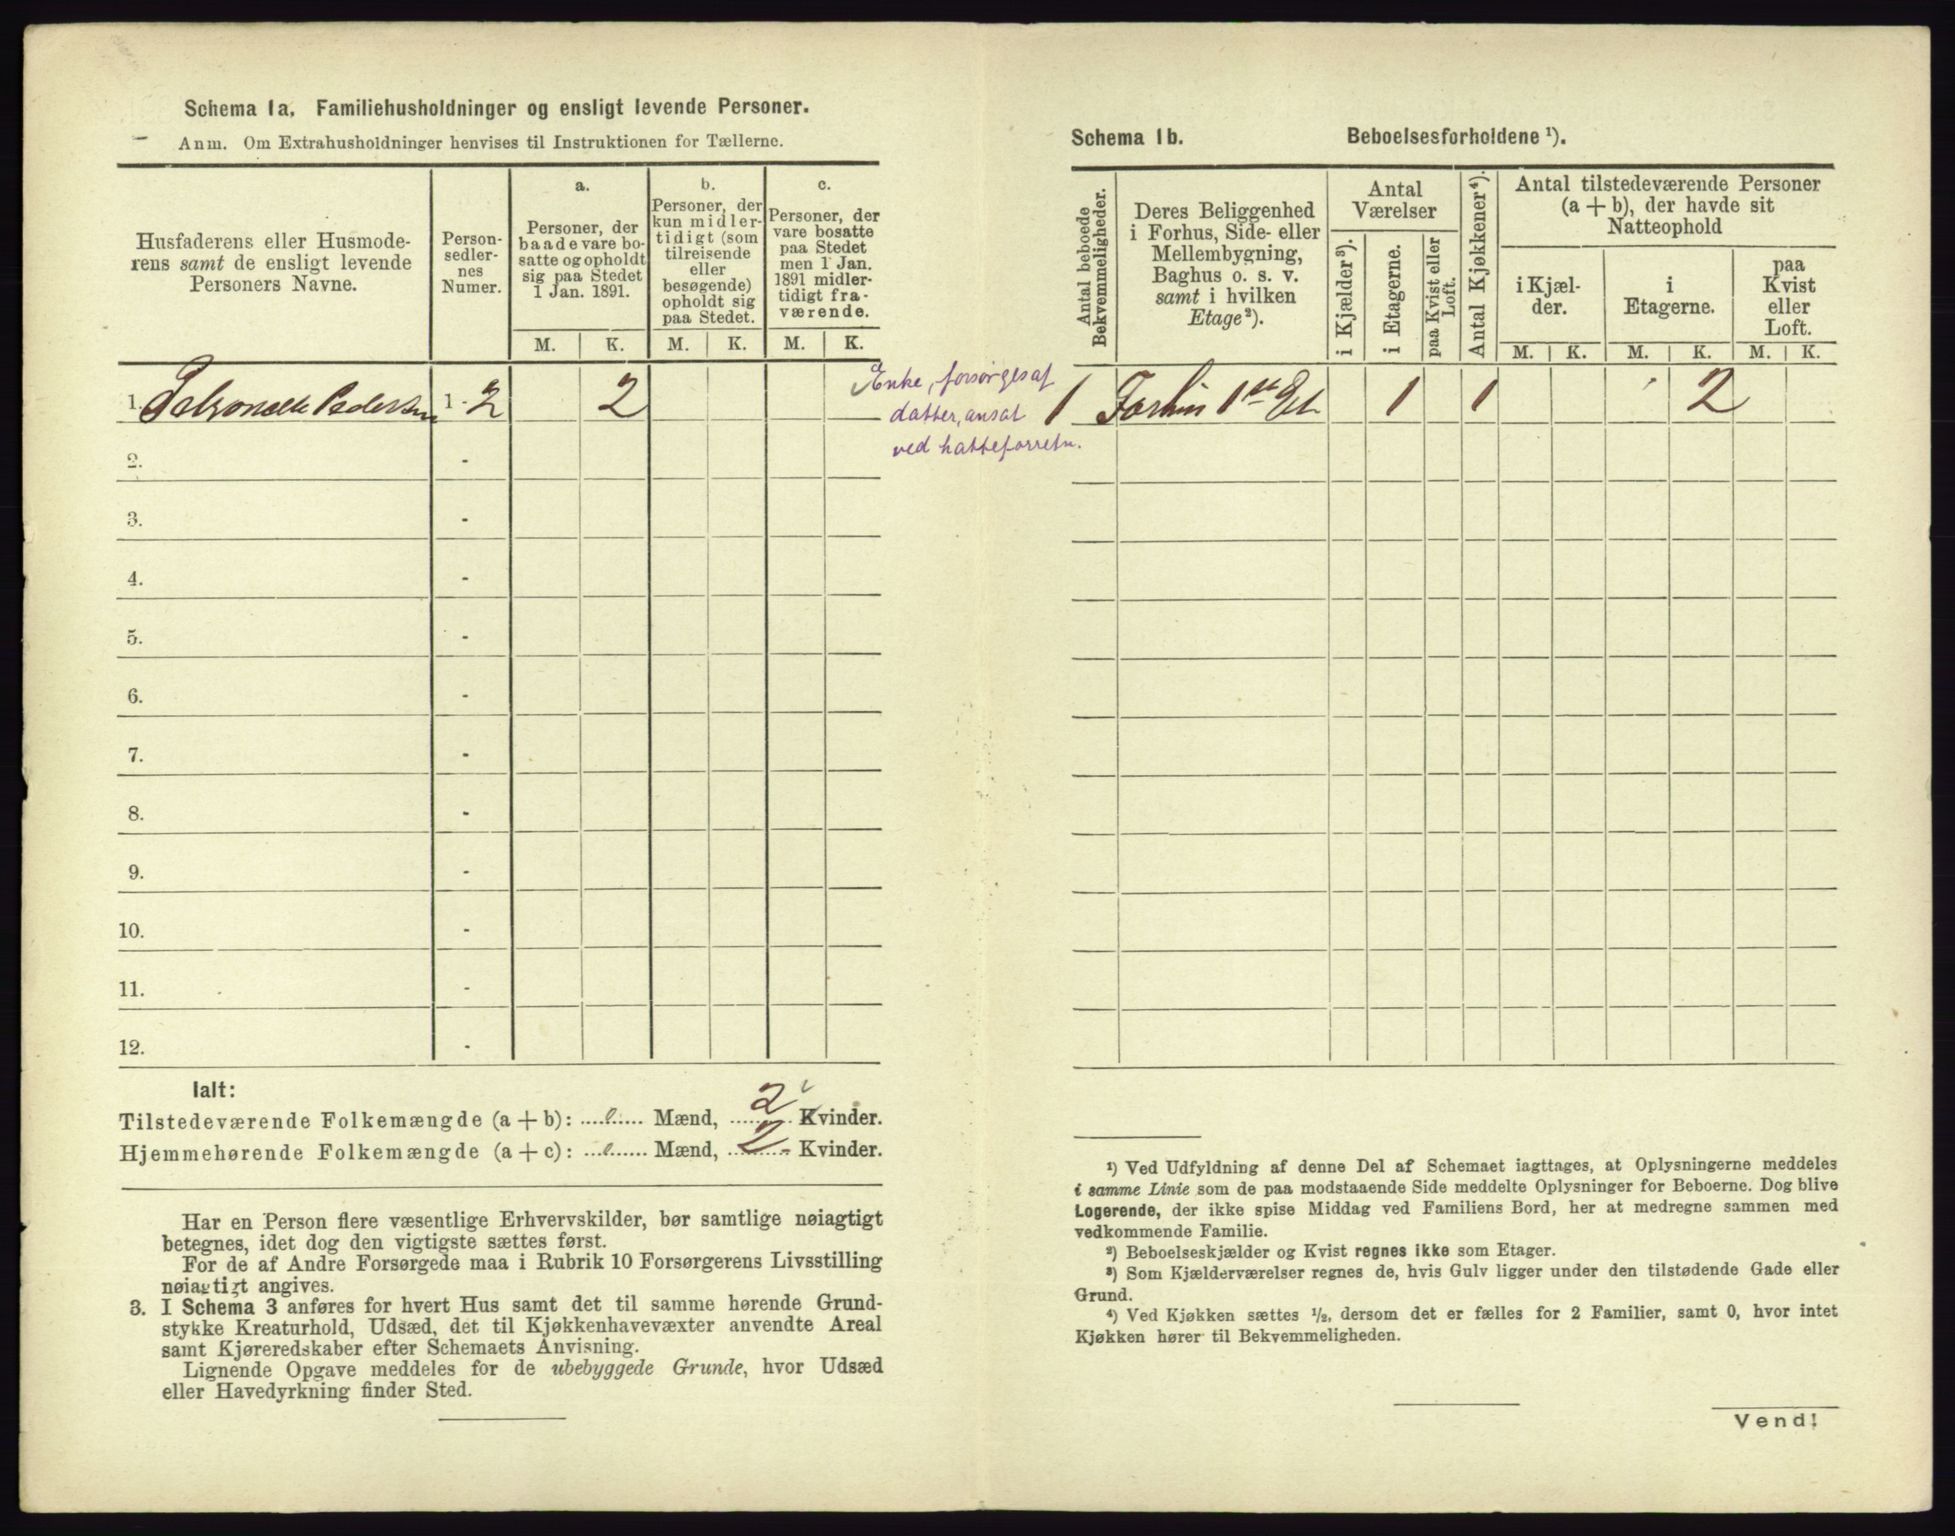 Schema 1a. Familiehusholdninger og ensligt levende Personer.
Anm. Om Extrahusholdninger henvises til Instruktionen for Tællerne.
Husfaderens eller Husmode-
rens samt de ensligt levende
Personers Navne.
Person-
sedler-
nes
Numer.
a.
Personer, der
baade vare bo-
satte og opholdt
sig paa Stedet
1 Jan. 1891.
b.
Personer, der
kun midler-
tidigt (som
tilreisende
eller
besøgende)
opholdt sig
paa Stedet.
c.
Personer, der
vare bosatte
paa Stedet
men 1 Jan.
1891 midler-
tidigt fra-
værende.
M. K. M. K. M. K.
1. Petronelle Pedersen 1-2 2
Enke, forsørges af
datter, ansat
ved hatteforretn.
2. -
3. -
4. -
5. -
6. -
7. -
8. -
9. -
10. -
11. -
12. -
Ialt:
Tilstedeværende Folkemængde (a + b): 0 Mænd, 2 Kvinder.
Hjemmehørende Folkemængde (a + c): 0 Mænd, 2 Kvinder.
Har en Person flere væsentlige Erhvervskilder, bør samtlige nøiagtigt
betegnes, idet dog den vigtigste sættes først.
For de af Andre Forsørgede maa i Rubrik 10 Forsørgerens Livsstilling
nøiagtigt angives.
3. I Schema 3 anføres for hvert Hus samt det til samme hørende Grund-
stykke Kreaturhold, Udsæd, det til Kjøkkenhavevæxter anvendte Areal
samt Kjøreredskaber efter Schemaets Anvisning.
Lignende Opgave meddeles for de ubebyggede Grunde, hvor Udsæd
eller Havedyrkning finder Sted.
Schema 1b. Beboelsesforholdene ¹).
Antal beboede
Bekvemmeligheder.
Deres Beliggenhed
i Forhus, Side- eller
Mellembygning,
Baghus o. s. v.
samt i hvilken
Etage²).
Antal
Værelser
i Kjælder³).
i Etagerne.
paa Kvist eller
Loft.
Antal Kjøkkener⁴).
Antal tilstedeværende Personer
(a + b), der havde sit
Natteophold
i Kjæl-
der.
i
Etagerne.
paa
Kvist
eller
Loft.
M. K. M. K. M. K.
1 Forhus 1ste Et. 1 1 2
¹) Ved Udfyldning af denne Del af Schemaet iagttages, at Oplysningerne meddeles
i samme Linie som de paa modstaaende Side meddelte Oplysninger for Beboerne. Dog blive
Logerende, der ikke spise Middag ved Familiens Bord, her at medregne sammen med
vedkommende Familie.
²) Beboelseskjælder og Kvist regnes ikke som Etager.
³) Som Kjælderværelser regnes de, hvis Gulv ligger under den tilstødende Gade eller
Grund.
⁴) Ved Kjøkken sættes ½, dersom det er fælles for 2 Familier, samt 0, hvor intet
Kjøkken hører til Bekvemmeligheden.
Vend!